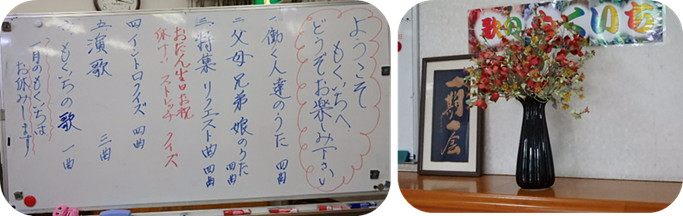 ようこそ
もくいちへ
どうぞお楽しみ下さい
一、働く人達のうた 四曲
二、父母 兄弟 娘のうた 四曲
三、特集 リクエスト曲 四曲
おたん生日お祝
休けい ストレッチ クイズ
四 イントロクイズ 四曲
五 演歌 三曲
もくいちの歌 一曲
一月のもくいちは
お休みします
歌母もくいち
一期一会